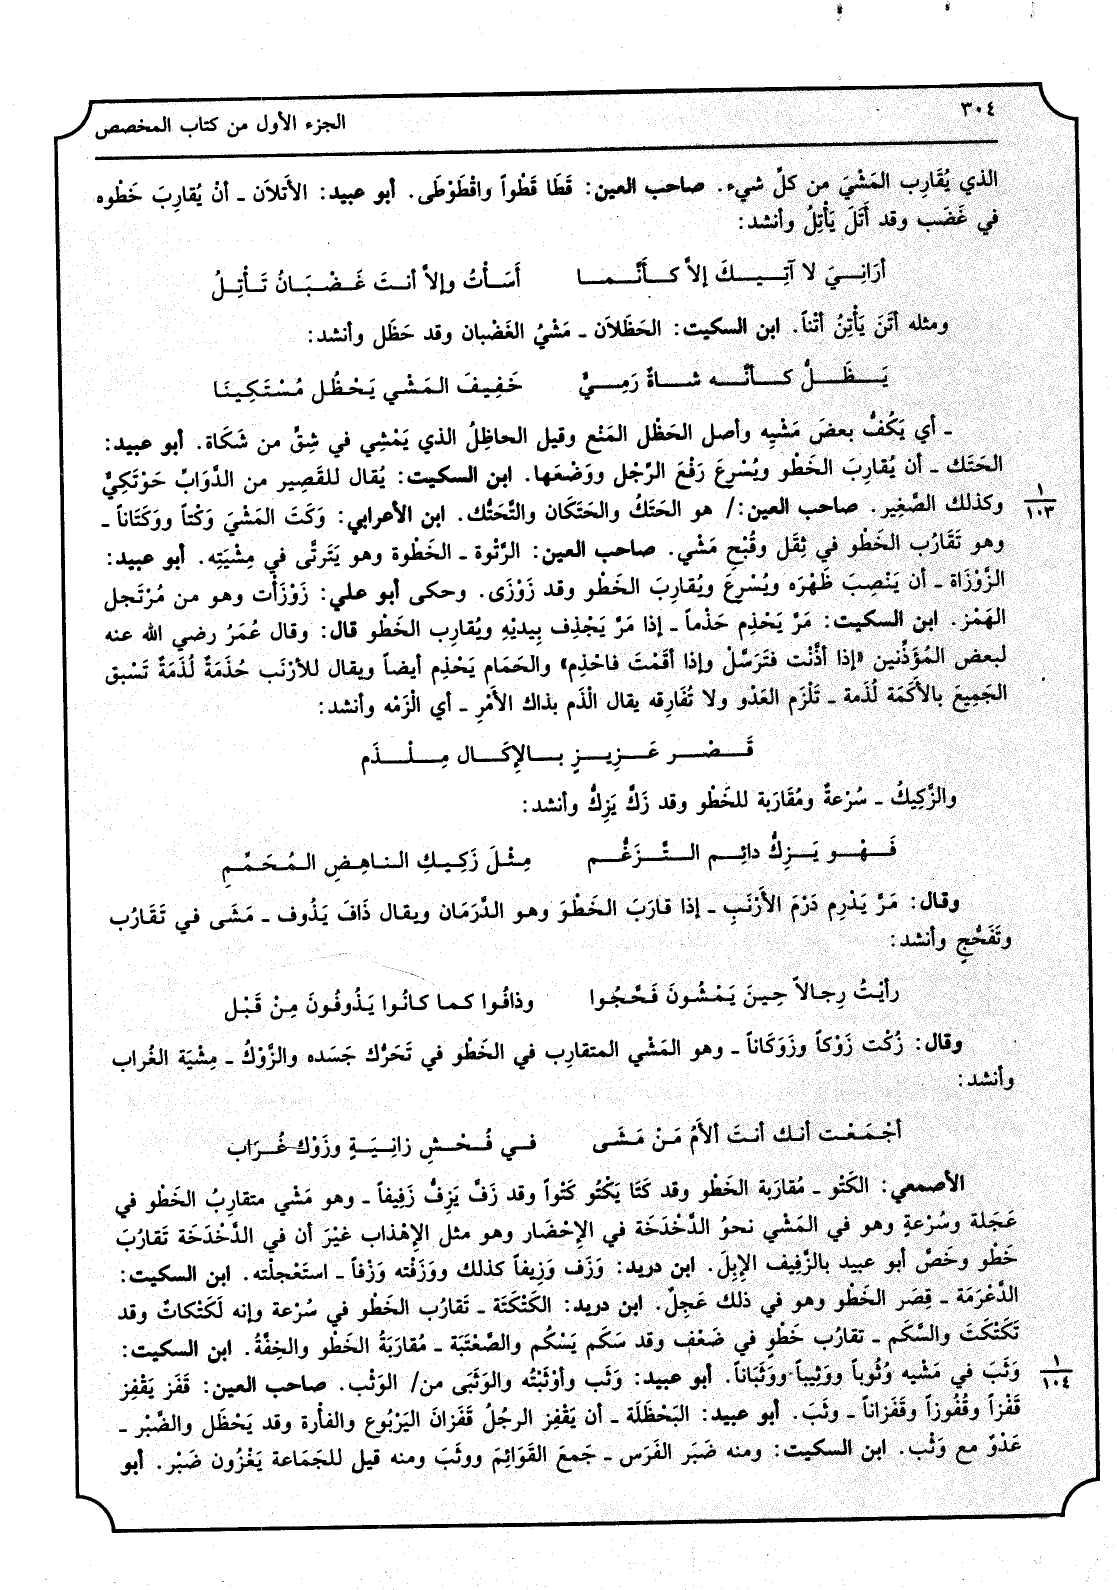 ٣٠٤
الجزء الأول من كتاب المخصص
الذي يُقَارِب المَشْيَ من كلِّ شيء. صاحب العين: قَطَا قَطْواً واقْطَوْطَى. أبو عبيد: الأَتَلاَن ـ أنْ يُقارِبَ خَطْوه
في غَضَب وقد أَتَلَ يَأْتِلُ وأنشد:
أرَانِيَ لا آتِيكَ إلاَّ كأَنَّما أَسَأْتُ وإلاَّ أنتَ غَضْبَانُ تَأْتِلُ
ومثله أتَنَ يَأْتِنُ أتْناً. ابن السكيت: الحَظَلاَن ـ مَشْيُ الغَضْبان وقد حَظَل وأنشد:
يَظَلُّ كأنَّه شاةٌ رَمِيٌّ خَفِيفَ المَشْي يَحْظُل مُسْتَكِينَا
ـ أي يَكُفُّ بعضَ مَشْيِه وأصل الحَظْل المَنْع وقيل الحاظِلُ الذي يَمْشِي في شِقٍّ من شَكَاة. أبو عبيد:
الحَتَك ـ أن يُقارِبَ الخَطْو ويُسْرِعَ رَفْعَ الرِّجْل ووَضْعَها. ابن السكيت: يُقال للقَصِير من الدَّوَابِّ حَوْتَكِيٌّ
وكذلك الصَّغِير. صاحب العين:/ هو الحَتَكُ والحَتَكَان والتَّحَتُّك. ابن الأعرابي: وَكَتَ المَشْيَ وَكْتاً ووَكَتَاناً ـ
١
١٠٣
وهو تَقَارُب الخَطْو في ثِقَل وقُبْحِ مَشْي. صاحب العين: الرَّتْوة ـ الخَطْوة وهو يَتَرتَّى في مِشْيَتِه. أبو عبيد:
الزَّوْزَاة ـ أن يَنْصِبَ ظَهْرَه ويُسْرِعَ ويُقارِبَ الخَطْو وقد زَوْزَى. وحكى أبو علي: زَوْزَأْت وهو من مُرْتَجل
الهَمْز. ابن السكيت: مَرَّ يَحْذِم حَذْماً ـ إذا مَرَّ يَجْذِف بِيديْهِ ويُقارِب الخَطْو قال: وقال عُمَرُ رضي الله عنه
لبعض المُؤَذِّنين «إذا أذَّنْت فَتَرَسَّلْ وإذا أقَمْتَ فاحْذِم» والحَمَام يَحْذِم أيضاً ويقال للأرْنَب حُذَمَةٌ لُذَمَةٌ تَسْبق
الجَمِيعَ بالأَكَمَة لُذَمة ـ تَلْزَم العَدْو ولا تُفَارِقه يقال الْذَم بذاك الأَمْرِ ـ أي الْزَمْه وأنشد:
قَصْر عَزِيزٍ بالإِكَال مِلْذَم
والزَّكِيكُ ـ سُرْعةٌ ومُقَارَبة للخَطْو وقد زَكَّ يَزِكُّ وأنشد:
فَهْو يَزِكُّ دائِم التَّزَغُّم مِثْلَ زَكِيكِ الناهِضِ المُحَمِّمِ
وقال: مَرَّ يَدْرِم دَرْمَ الأَرْنَبِ ـ إذا قارَبَ الخَطْوَ وهو الدَّرَمَان ويقال ذَافَ يَذُوف ـ مَشَى في تَقَارُب
وتَفَحُّجٍ وأنشد:
رأيْتُ رِجالاً حِينَ يَمْشُونَ فَحَّجُوا وذافُوا كما كانُوا يَذُوفُونَ مِنْ قَبْل
وقال: زُكْت زَوْكاً وزَوَكَاناً ـ وهو المَشْي المتقارِب في الخَطْو في تَحَرُّك جَسَده والزَّوْكُ ـ مِشْيَة الغُراب
وأنشد:
أجْمَعْت أنك أنتَ ألأَمُ مَنْ مَشَى في فُحْشِ زانِيَةٍ وزَوْك غُرَاب
الأصمعي: الكَتْو ـ مُقارَبة الخَطْو وقد كَتَا يَكْتُو كَتْواً وقد زَفَّ يَزِفُّ زَفِيفاً ـ وهو مَشْي متقارِبُ الخَطْو في
عَجَلة وسُرْعةٍ وهو في المَشْي نحوُ الدَّخْدَخَة في الإحْضَار وهو مثل الإهْذاب غيْرَ أن في الدَّخْدَخَة تَقارُبَ
خَطْو وخَصَّ أبو عبيد بالزَّفِيف الإِبِلَ. ابن دريد: وَزَف وَزِيفاً كذلك ووَزَفْته وَزْفاً ـ استَعْجلْته. ابن السكيت:
الدَّعْرَمَة ـ قِصَر الخَطْو وهو في ذلك عَجِلٌ. ابن دريد: الكَتْكَتَة ـ تَقارُب الخَطْو في سُرْعة وإنه لَكَتْكاتٌ وقد
تَكَتْكَتَ والسَّكَم ـ تقارُب خَطْوٍ في ضَعْف وقد سَكَم يَسْكُم والصَّعْتَبَة ـ مُقارَبَةُ الخَطْو والخِفَّةُ. ابن السكيت:
وَثَبَ في مَشْيه وُثُوباً ووَثِيباً ووَثَبَاناً. أبو عبيد: وَثَب وأوْثَبْتُه والوَثَبَى من/ الوَثْب. صاحب العين: قَفَز يَقْفِز
١
١٠٤
قَفْزاً وقُفُوزاً وقَفَزاناً ـ وثَبَ. أبو عبيد: البَحْظَلَة ـ أن يَقْفِز الرجلُ قَفَزانَ اليَرْبُوع والفأرة وقد بَحْظَل والضَّبْر ـ
عَدْوٌ مع وَثْب. ابن السكيت: ومنه ضَبَر الفَرَس ـ جَمعَ القَوَائِمَ ووثَبَ ومنه قيل للجَمَاعة يَغْزُون ضَبْر. أبو